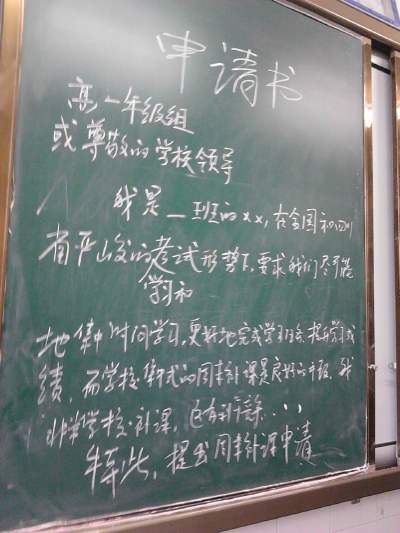 申请书
高一年级组
或尊敬的学校领导
我是_班的xx,在全国和四川
省严峻的考试形势下,要求我们尽可能
学习和
地集中时间学习,更好地完成学习任务,提升学习成
绩,而学校集中式的周末补课是良好的平台,我
非常学校补课,还有......
特此,提出周末补课申请